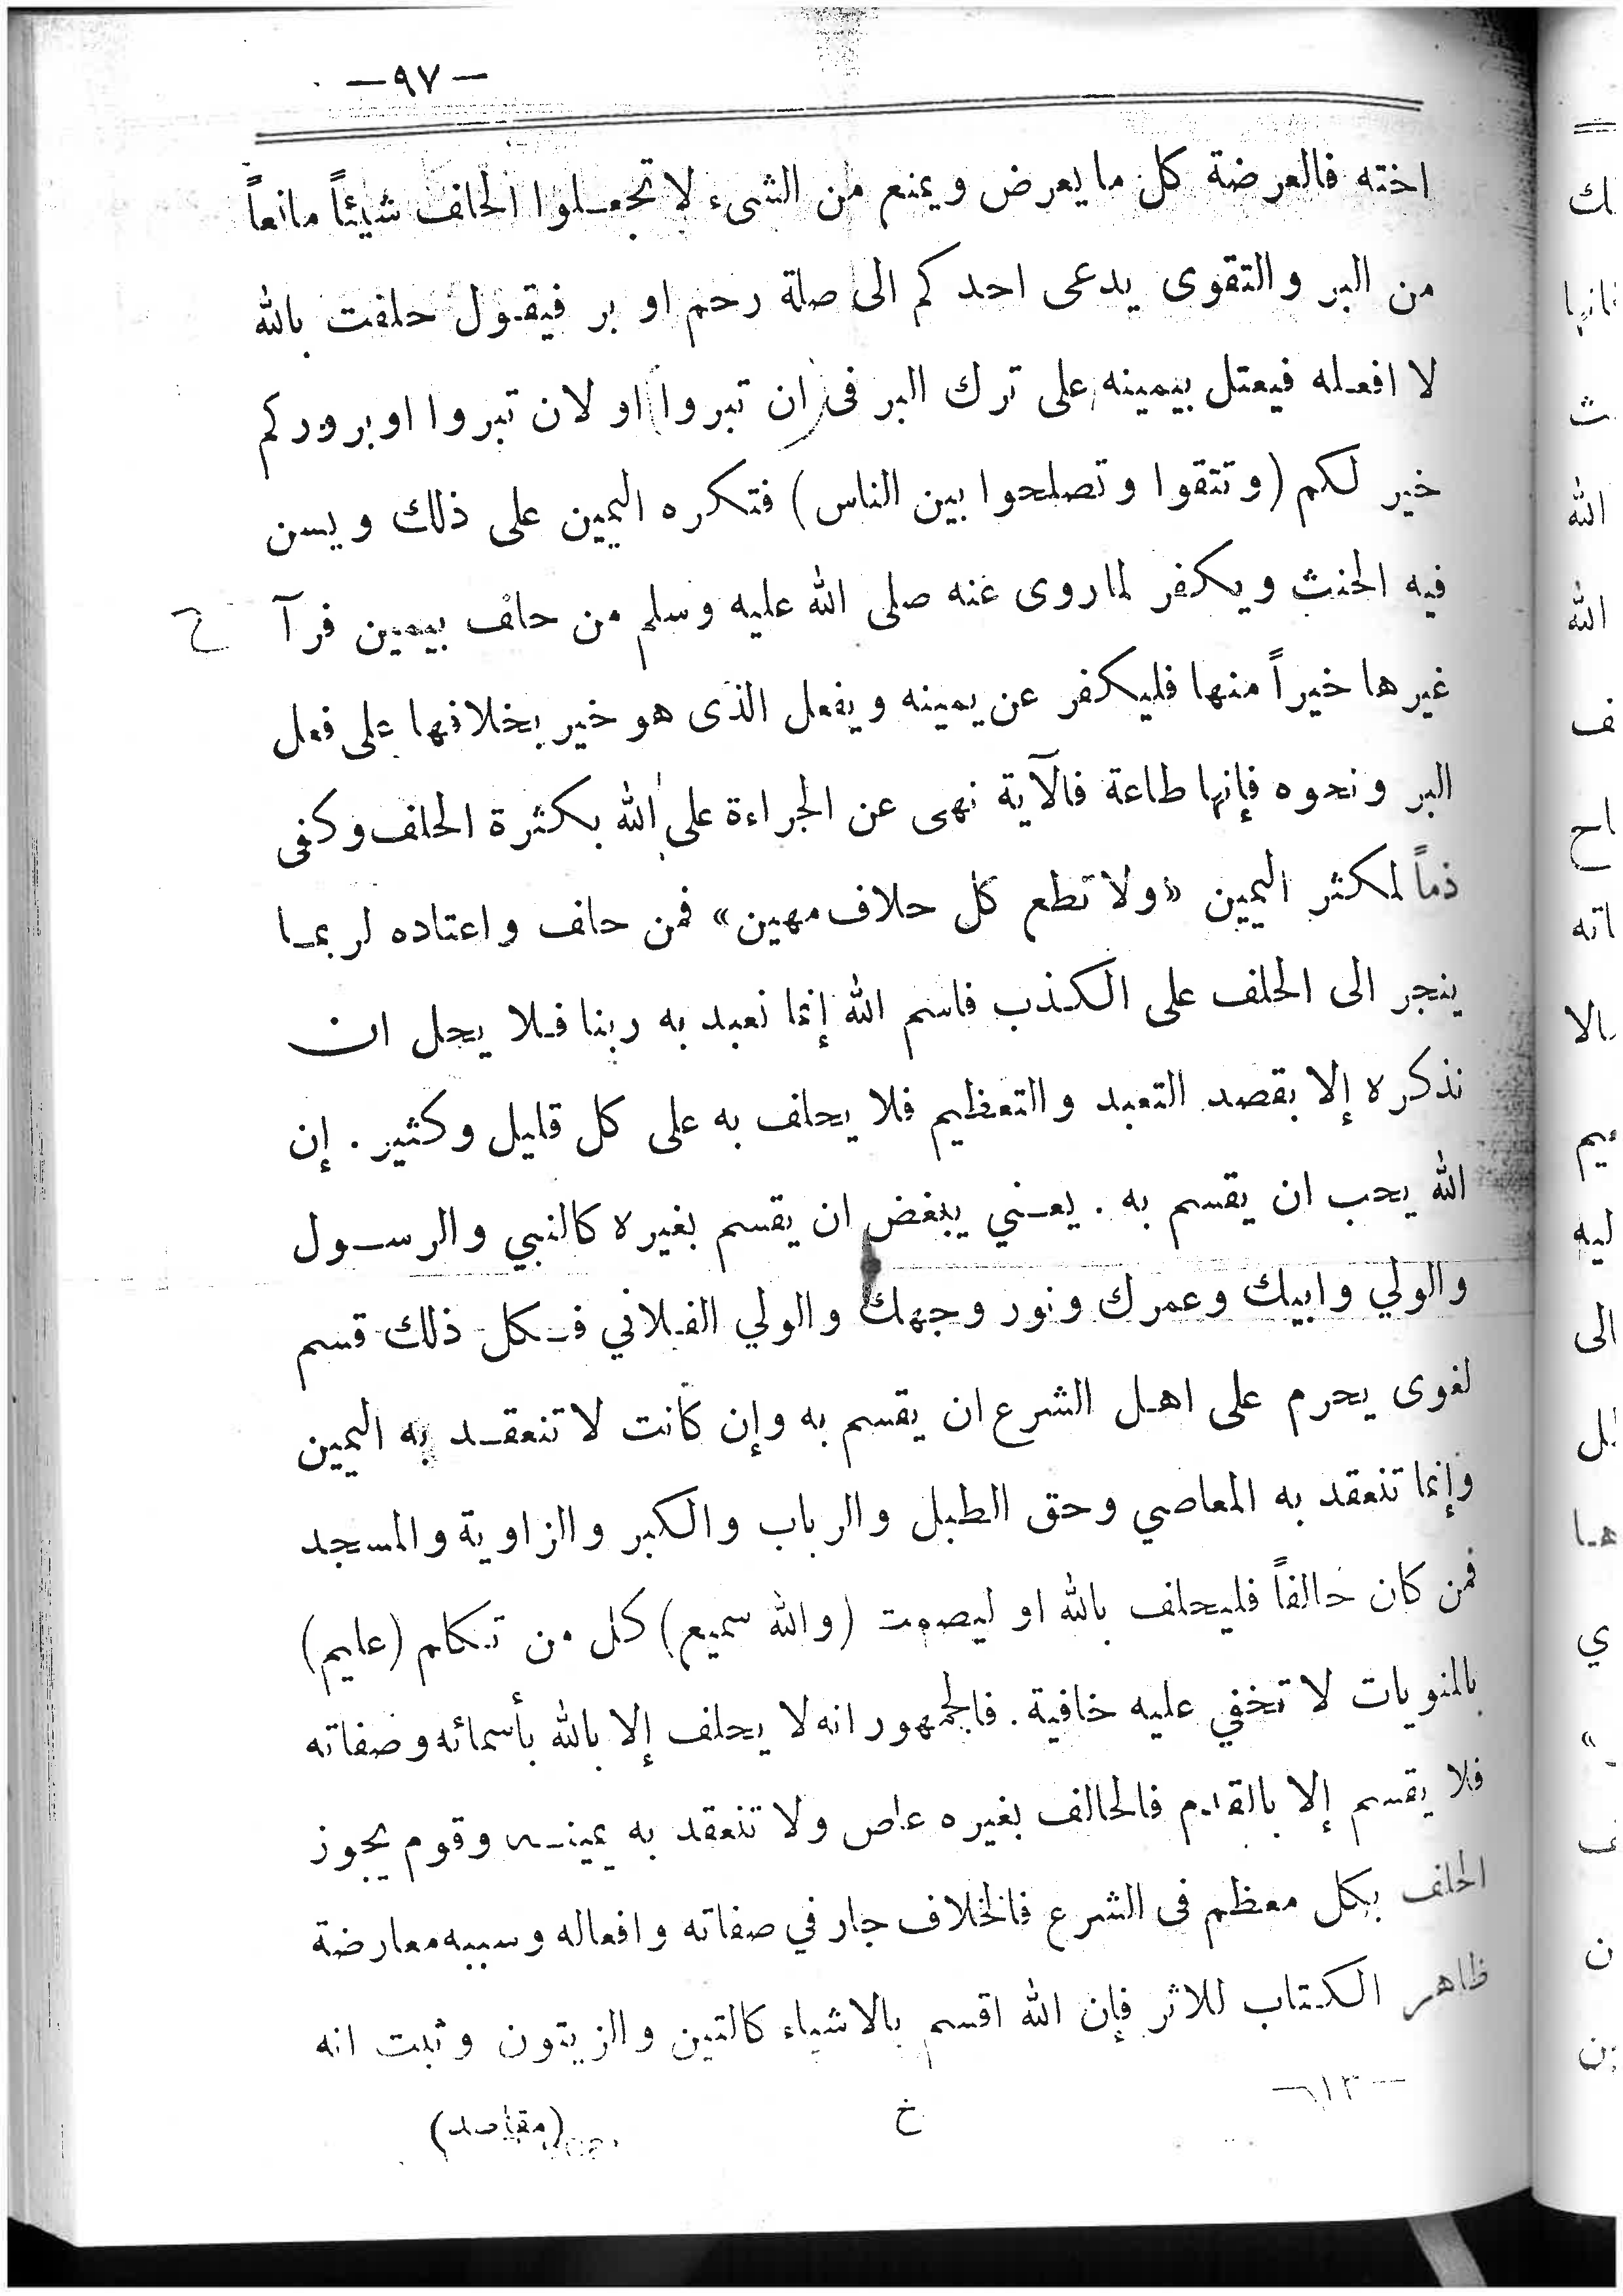 —٩٧—
اخته فالعرضة كل ما يعرض ويمنع من الشىء لا تجعلوا الحلف شيئاً مانعاً
من البر والتقوى يدعى احدكم الى صلة رحم او بر فيقول حلفت بالله
لا افعله فيعتل بيمينه على ترك البر فى (ان تبروا) او لان تبروا او بروركم
خير لكم (وتتقوا وتصلحوا بين الناس) فتكره اليمين على ذلك ويسن
فيه الحنث ويكفر لما روى عنه صلى الله عليه وسلم من حلف بيمين فرآ
ح
غيرها خيراً منها فليكفر عن يمينه ويفعل الذى هو خير بخلافها على فعل
البر ونحوه فإنها طاعة فالآية نهى عن الجراءة على الله بكثرة الحلف وكفى
ذماً لمكثر اليمين «ولا تطع كل حلاف مهين» فمن حلف واعتاده لربما
ينجر الى الحلف على الكذب فاسم الله إنما نعبد به ربنا فلا يحل ان
نذكره إلا بقصد التعبد والتعظيم فلا يحلف به على كل قليل وكثير . إن
الله يحب ان يقسم به . يعني يبغض ان يقسم بغيره كالنبي والرسول
والولي وابيك وعمرك ونور وجهك والولي الفلاني فكل ذلك قسم
لغوى يحرم على اهل الشرع ان يقسم به وإن كانت لا تنعقد به اليمين
وإنما تنعقد به المعاصي وحق الطبل والرباب والكبر والزاوية والمسجد
فمن كان حالفاً فليحلف بالله او ليصمت (والله سميع) كل من تكلم (عليم)
بالمنويات لا تخفي عليه خافية . فالجمهور انه لا يحلف إلا بالله بأسمائه وصفاته
فلا يقسم إلا بالقدم فالحالف بغيره عاص ولا تنعقد به يمينه وقوم يجوز
الحلف بكل معظم فى الشرع فالخلاف جار في صفاته وافعاله وسببه معارضة
ظاهر الكتاب للاثر فإن الله اقسم بالاشياء كالتين والزيتون وثبت انه
—١٣—
خ
(مقاصد)